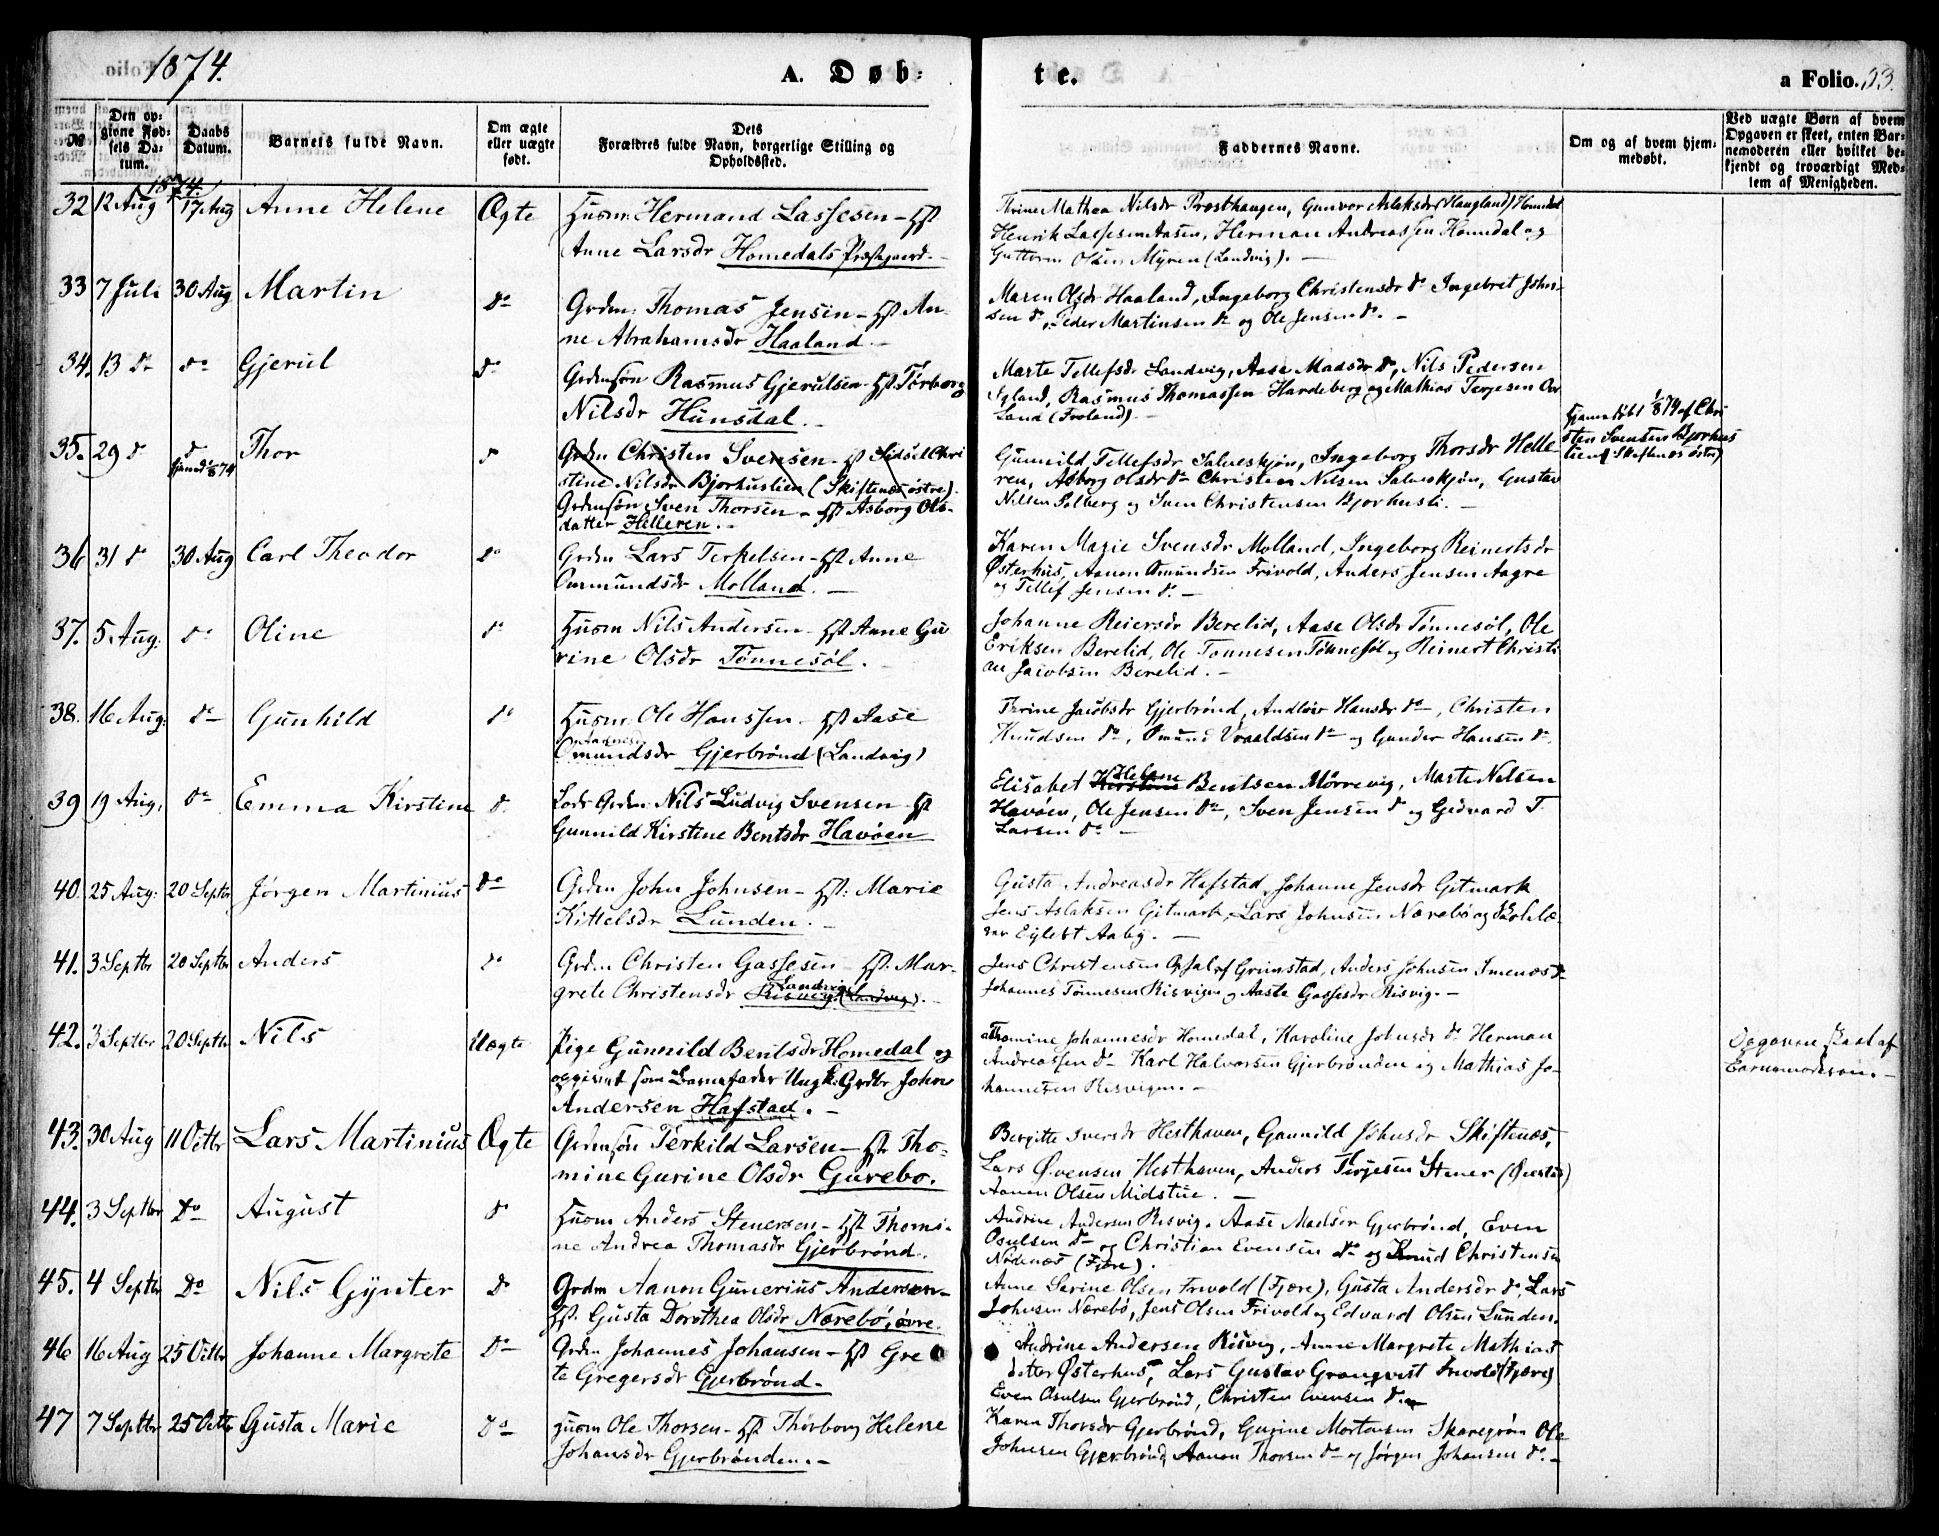 1874.
A. Døb-
te.
a Folio. 53.
No
Den op-
givne Fød-
sels Da-
tum.
Daabs
Datum.
Barnets fulde Navn.
Om ægte
eller uægte
født.
Dets
Forældres fulde Navn, borgerlige Stilling og
Opholdssted.
Faddernes Navne.
Om og af hvem hjem-
medøbt.
Ved uægte Børn af hvem
Opgaven er skeet, enten Bar-
nemoderen eller hvilket be-
kjendt og troværdigt Med-
lem af Menigheden.
1874.
32 12 Aug 17 Aug Anne Helene Ægte Husm. Hermand Lassesen - Hst
Anne Larsdr Homedals Præstegaard.
Thrine Mathea Nilsdr Præsthaugen, Gunvor Aslaksdr (Haugland) Homdal
Henrik Lassesen Aasen, Herman Andreassen Homdal og
Guttorm Olsen Myren (Landvig). -
33 7 Juli 30 Aug Martin Do Grdm: Thomas Jensen - Hst An-
ne Abrahamsdr Haaland. -
Maren Olsdr Haaland, Ingeborg Christensdr Do Ingebret John-
sen Do, Peder Martinsen Do og Ole Jensen Do. -
34. 13 Do Do Gjerul Do Grdmsøn Rasmus Gjerulsen - Hst Torborg
Nilsdr Hunsdal. -
Marte Tellefsdr Landvig, Aase Madsdr Do, Nils Pedersen
Igland, Rasmus Thomassen Hardeberg og Mathias Terjesen Ov
Land (Froland). -
35. 29 D D Thor D Grdm Christen Svensen - Hst Sidsel Chri
hjemd 1/8 74
stine Nilsdr Bjorhuslien (Skiftenæs østre).
Grdmsøn Sven Thorsen - Hst Asborg Ols-
datter Helleren. -
Gunnild Tellefsdr Salveskjøn, Ingeborg Thorsdr Helle-
ren, Asborg Olsdr Do Christen Nilsen Salveskjøn, Gustav
Nilsen Solberg og Sven Christensen Bjorhusli. -
Hjemmedøbt 1/8 74 af Chri
sten Svensen Bjorhus
lien (Skiftenæs østre)
36 31 D 30 Aug Carl Theodor Do Grdm Lars Terkelsen - Hst Anne
Ommundsdr Molland. -
Karen Marie Svensdr Molland, Ingeborg Reinertsdr
Østerhus, Aanon Omundsen Frivold, Anders Jensen Aagre
og Tellef Jensen Do. -
37. 5 Aug: Do Oline Do Husm Nils Andersen - Hst Anne Gu
rine Olsdr Tønnesøl. -
Johanne Reiersdr Berelid, Aase Olsdr Tønnesøl, Ole
Eriksen Berelid, Ole Tønnesen Tønnesøl og Reinert Christi
an Jacobsen Berelid. -
38. 16 Aug: Do Gunhild Do Husm. Ole Hanssen. Hst Aase
Omundsdr Gjerbrønd (Landvig)
Thrine Jacobsdr Gjerbrønd, Andløir Hansdr Do, Christen
Knudsen Do, Omund Do og Gunder Hansen Do.
39 19 Aug. Do Emma Kirstine D. Lods Grdm. Nils Ludvig Svensen Hst
Gunnild Kirstine Bentsdr Havøen
Elisabet Kirstine Helene Bentsen Mørrevig, Marte Nilsen
Havøen, Ole Jensen Do, Sven Jensen D og Gedvard T.
Larsen Do -
40. 25 Aug: 20 Septbr Jørgen Martinius Do Grdm John Johnsen - Hst: Marie
Kittelsdr Lunden. -
Gusta Andreasdr Hafstad, Johanne Jensdr Gitmark
Jens Aslaksen Gitmark, Lars Johnsen Nærebø og
Eylert Aaby. -
41. 3 Septbr 20 Septbr Anders Do Grdm Christen Gassesen - Hst. Mar-
grete Christensdr Risvig (Landvig). -
Landvig
Jens Christensen Opsal af Grimstad, Anders Johnsen Imenæs D
Johannes Tønnesen Risvigen og Aaste Gassesdr Risvig. -
42. 3 Septbr 20 Septbr Nils Uægte Pige Gunnild Bentsdr Homedal og
opgivet som Barnefader Ungk. Grdbr John
Andersen Hafstad. -
Thomine Johannesdr Homedal, Karoline Johnsdr Do Herman
Andreassen Do Karl Halvorsen Gjerbrønden og Mathias Jo-
hannesen Risvigen. -
Opgaven skeet af
Barnemoderen. -
43. 30 Aug 11 Octbr Lars Martinius Ægte Grdmsøn Terkild Larsen - Hst Tho-
mine Gurine Olsdr Gurebo.
Bergitte Iversdr Hesthaven, Gunnild Johnsdr Skiftenæs,
Lars Øvensen Hesthaven, Anders Terjesen Stener (Øiestad)
Aanon Olsen Midstue. -
44. 3 Septbr Do August D Husm Anders Stenersen - Hst Thomi-
ne Andrea Thomasdr Gjerbrønd.
Andrine Andersen Risvig, Aase Madsen Gjerbrønd, Even
Osulsen Do og Christian Evensen Do og Knud Christensen
Nødenæs (Fjære).
45. 4 Septbr Do Nils Gynter D Grdm Aanon Gunerius Andersen -
Hst. Gusta Dorothea Olsdr Nærebø, øvre.
Anne Serine Olsen Frivold (Fjære), Gusta Andersdr D, Lars
Johnsen Nærebø, Jens Olsen Frivold og Edvard Olsen Lunden.
46 16 Aug 25 Octbr Johanne Margrete Do Grdm Johannes Johansen - Hst Gre
te Gregersdr Gjerbrønd. -
Andrine Andersen Risvig, Anne Margrete Mathias
datter Østerhus, Lars Gustav Granqvist Frivold (Fjære)
Even Osulsen Gjerbrønd, Christen Evensen D.
47 7 Septbr 25 Octbr Gusta Marie Do Husm Ole Thorsen - Hst Thorborg Helene
Johansdr Gjerbrønden. -
Karen Thorsdr Gjerbrønd, Gurine Mortensen Skaregrøn Ole
Johnsen Gjerbrønd, Aanon Thorsen Do og Jørgen Johansen Do. -